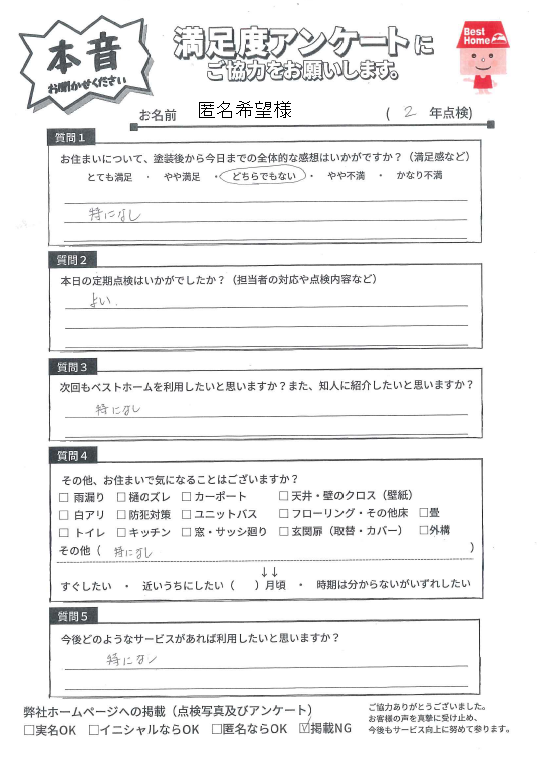 本音
お聞かせください
満足度アンケートに
ご協力をお願いします。
Best Home
お名前 匿名希望様 ( 2 年点検)
質問1
お住まいについて、塗装後から今日までの全体的な感想はいかがですか?(満足感など)
とても満足 ・ やや満足 ・ どちらでもない ・ やや不満 ・ かなり不満
特になし
質問2
本日の定期点検はいかがでしたか?(担当者の対応や点検内容など)
よい.
質問3
次回もベストホームを利用したいと思いますか?また、知人に紹介したいと思いますか?
特になし
質問4
その他、お住まいで気になることはございますか?
□ 雨漏り □ 樋のズレ □ カーポート □ 天井・壁のクロス(壁紙)
□ 白アリ □ 防犯対策 □ ユニットバス □ フローリング・その他床 □畳
□ トイレ □ キッチン □ 窓・サッシ廻り □ 玄関扉(取替・カバー) □外構
その他( 特になし )
↓↓
すぐしたい ・ 近いうちにしたい( )月頃 ・ 時期は分からないがいずれしたい
質問5
今後どのようなサービスがあれば利用したいと思いますか?
特になし
弊社ホームページへの掲載(点検写真及びアンケート)
□実名OK □イニシャルならOK □匿名ならOK ☑掲載NG
ご協力ありがとうございました。
お客様の声を真摯に受け止め、
今後もサービス向上に努めて参ります。